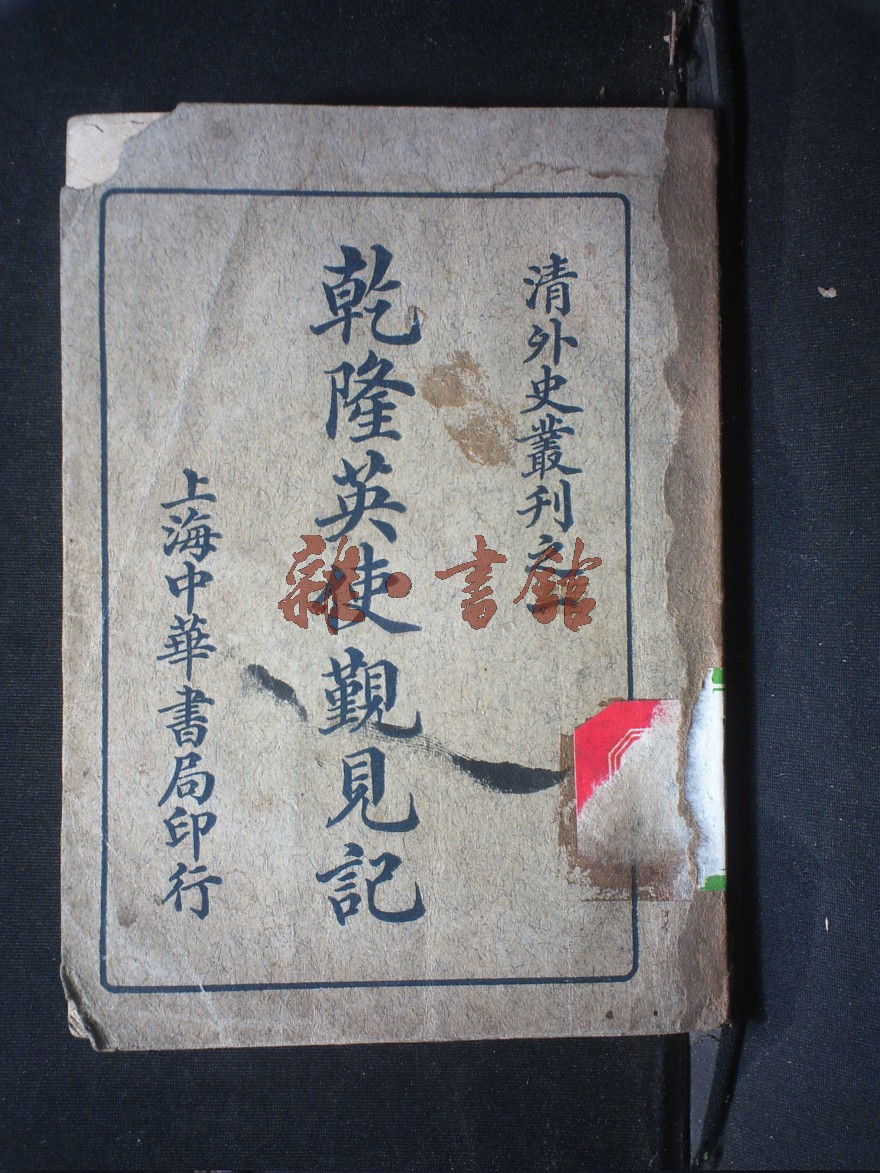 清外史叢刊之一
乾隆英使覲見記
上海中華書局印行
雜·書館